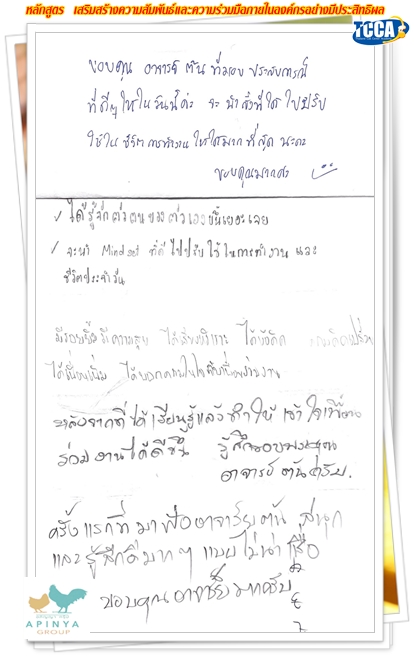 หลักสูตร เสริมสร้างความสัมพันธ์และความร่วมมือภายในองค์กรอย่างมีประสิทธิผล
TCCA
ขอบคุณ อาจารย์ ตั้น ที่มอบ ประสบการณ์
ที่ดีๆ ให้ในวันนี้ค่ะ จะ นำสิ่งที่ได้ ไปปรับ
ใช้ใน ชีวิต การทำงาน ให้ได้มาก ที่สุด นะคะ
ขอบคุณมากค่ะ
✓ ได้รู้จักตัวตนของตัวเองขึ้นเยอะเลย
✓ จะนำ Mindset ที่ดี ไปปรับใช้ในการทำงาน และ
ชีวิตประจำวัน
มีรอยยิ้ม มีความสุข ได้เสียงหัวเราะ ได้ข้อคิด
หลังจากที่ได้เรียนรู้แล้วทำให้เข้าใจเพื่อน
ร่วมงานได้ดีขึ้น รู้สึกขอบพระคุณ
อาจารย์ ตั้นครับ.
ครั้งแรกที่มาฟังอาจารย์ตั้น สนุก
และรู้สึกดีมากๆ แบบไม่น่าเชื่อ
ขอบคุณอาจารย์มากครับ
APINYA
GROUP